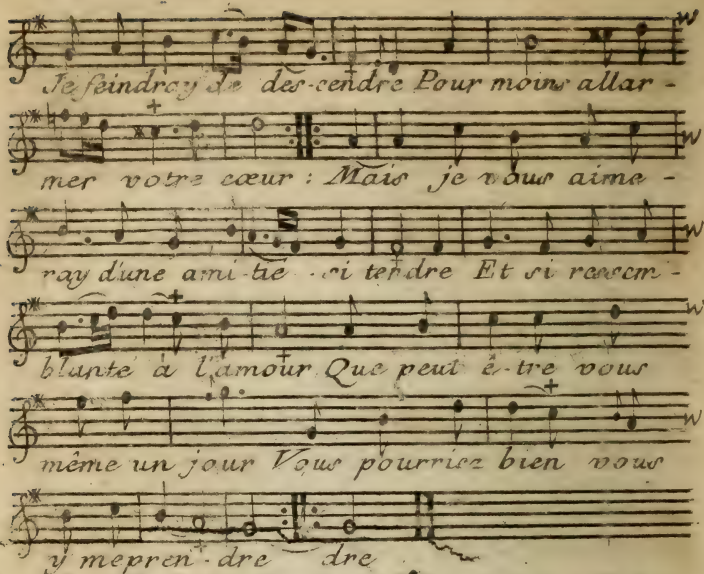 Je feindray de des-cendre Pour moins allar-
mer votre cœur : Mais je vous aime-
ray d'une ami-tie si tendre Et si ressem-
blante à l'amour Que peut ê-tre vous
même un jour Vous pourriez bien vous
y mepren-dre dre